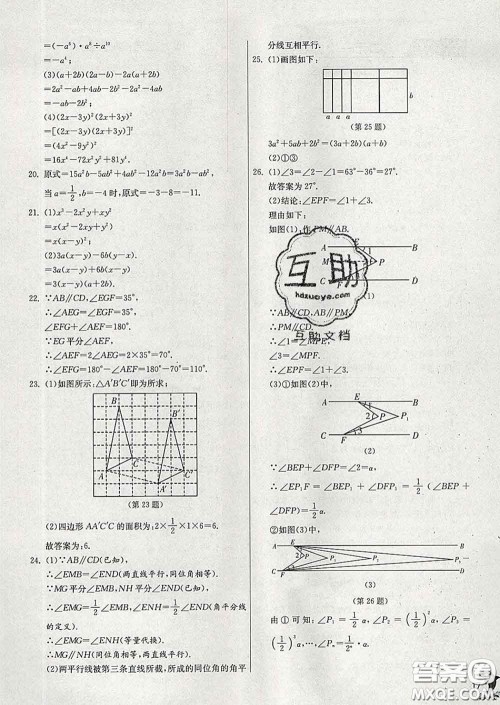 =(-a⁸)·a⁸÷a¹⁰
=-a⁶;
(3)(a+2b)(2a-b)-2a(a+2b)
=2a²-ab+4ab-2b²-2a²-4ab
=-ab-2b²;
(4)(2x-3y)²(2x+3y)²
=[(2x-3y)(2x+3y)]²
=(4x²-9y²)²
=16x⁴-72x²y²+81y⁴.
20. 原式=15a²b-5ab²+4ab²-12a²b=3a²b-ab²,
当a=1/2,b=-4时,原式=-3-8=-11.
21. (1)x³-2x²y+xy²
=x(x²-2xy+y²)
=x(x-y)²;
(2)3a(x-y)-6b(y-x).
=3a(x-y)+6b(x-y)
=3(x-y)(a+2b)
22. ∵AB∥CD,∠EGF=35°,
∴∠AEG=∠EGF=35°,
∠EFG+∠AEF=180°.
∵EG平分∠AEF,
∴∠AEF=2∠AEG=2×35°=70°.
∴∠EFG=180°-∠AEF=180°-70°=110°.
23. (1)如图所示:△A′B′C′即为所求;
B
B′
C
A
C′
A′
(第23题)
(2)四边形AA′C′C的面积为:2×1/2×1×6=6.
故答案为:6.
24. (1)∵AB∥CD(已知),
∴∠EMB=∠END(两直线平行,同位角相等).
∵MG平分∠EMB,NH平分∠END(已知),
∴∠EMG=1/2∠EMB,∠ENH=1/2∠END(角平分线
的定义).
∴∠EMG=∠ENH(等量代换).
∴MG∥NH(同位角相等,两直线平行).
(2)两平行线被第三条直线所截,所成的同位角的角平
分线互相平行.
25. (1)画图如下:
b
a a a
(第25题)
3a²+5ab+2b²=(3a+2b)(a+b)
(2)①③
26. (1)∠3=∠2-∠1=63°-36°=27°.
故答案为27°.
(2)结论:∠EPF=∠1+∠3.
理由如下:
如图(1),作PM∥AB.
A E B
1
M P
(1)
∵AB∥CD,
∴PM∥CD.
∴∠1=∠MPE,
∴∠EPF=∠1+∠3.
(3)①如图(2),
A E B
2 P P₁
C F D
(2)
∵∠BEP+∠DFP=∠2=α,
∴∠EP₁F=∠BEP₁+∠DFP₁=1/2(∠BEP+
∠DFP)=1/2∠2=1/2α.
②如图(3),
A E B
2 P P₁ P₂
C F D
(3)
(第26题)
由①可知:∠P₁=1/2α,∠P₂=(1/2)²α,∠P₃=
(1/2)³α,…,∠Pₙ=(1/2)ⁿα.
互助
hdzuoye.com
互助文档
答案圈
MXQE.COM